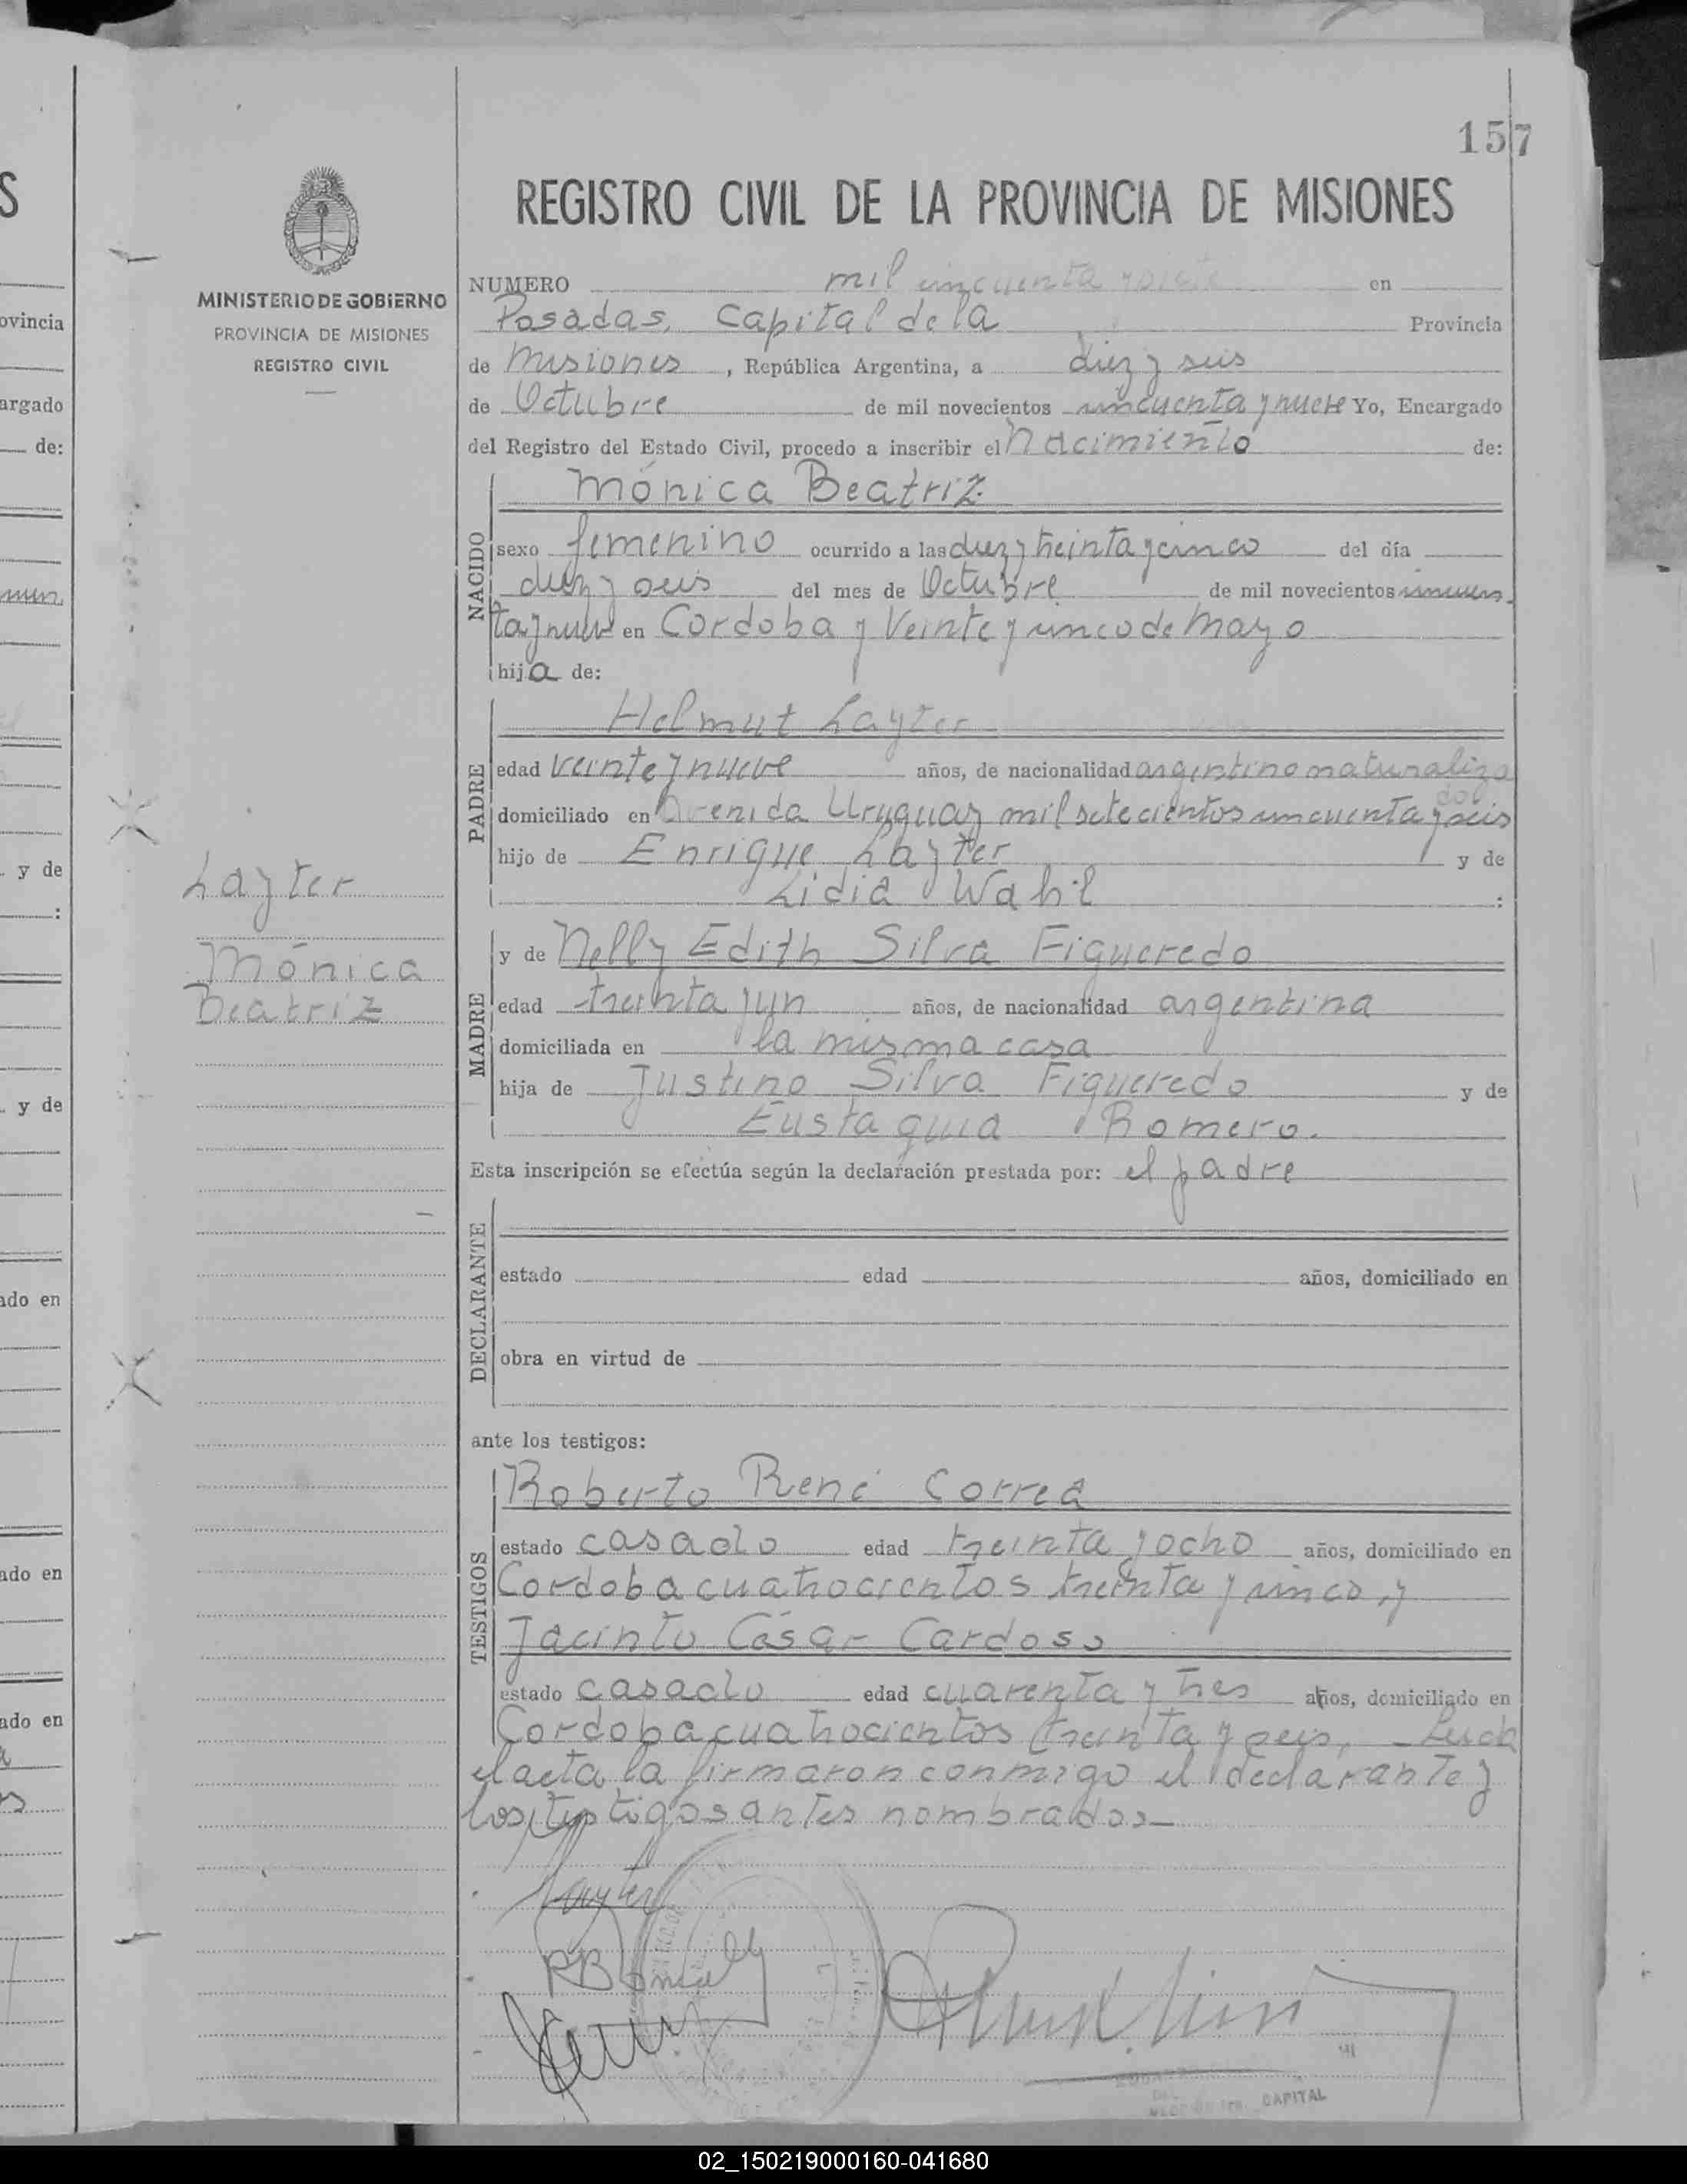 157
REGISTRO CIVIL DE LA PROVINCIA DE MISIONES
MINISTERIO DE GOBIERNO
PROVINCIA DE MISIONES
REGISTRO CIVIL
Layter
Mónica
Beatriz
NUMERO mil cincuenta y siete en
Posadas, Capital de la Provincia
de Misiones, República Argentina, a diez y seis
de Octubre de mil novecientos cincuenta y nueve Yo, Encargado
del Registro del Estado Civil, procedo a inscribir el Nacimiento de:
NACIDO
Mónica Beatriz
sexo femenino ocurrido a las diez y treinta y cinco del día
diez y seis del mes de Octubre de mil novecientos cincuen
ta y nueve en Cordoba y Veinte y cinco de Mayo
hija de:
PADRE
Helmut Layter
edad veinte y nueve años, de nacionalidad argentino naturaliza
do
domiciliado en Avenida Uruguay mil setecientos cincuenta y seis
hijo de Enrique Layter y de
Lidia Wahl :
MADRE
y de Nelly Edith Silva Figueredo
edad treinta y un años, de nacionalidad argentina
domiciliada en la misma casa
hija de Justino Silva Figueredo y de
Eustaquia Romero.
Esta inscripción se efectúa según la declaración prestada por: el padre
DECLARANTE
estado edad años, domiciliado en
obra en virtud de
ante los testigos:
TESTIGOS
Roberto René Correa
estado casado edad treinta y ocho años, domiciliado en
Cordoba cuatrocientos treinta y cinco, y
Jacinto César Cardoso
estado casado edad cuarenta y tres años, domiciliado en
Cordoba cuatrocientos treinta y seis, - Leida
el acta la firmaron conmigo el declarante y
los testigos antes nombrados-
Layter
CAPITAL
S
ovincia
argado
de:
y de
:
y de
ado en
ado en
ado en
02_150219000160-041680